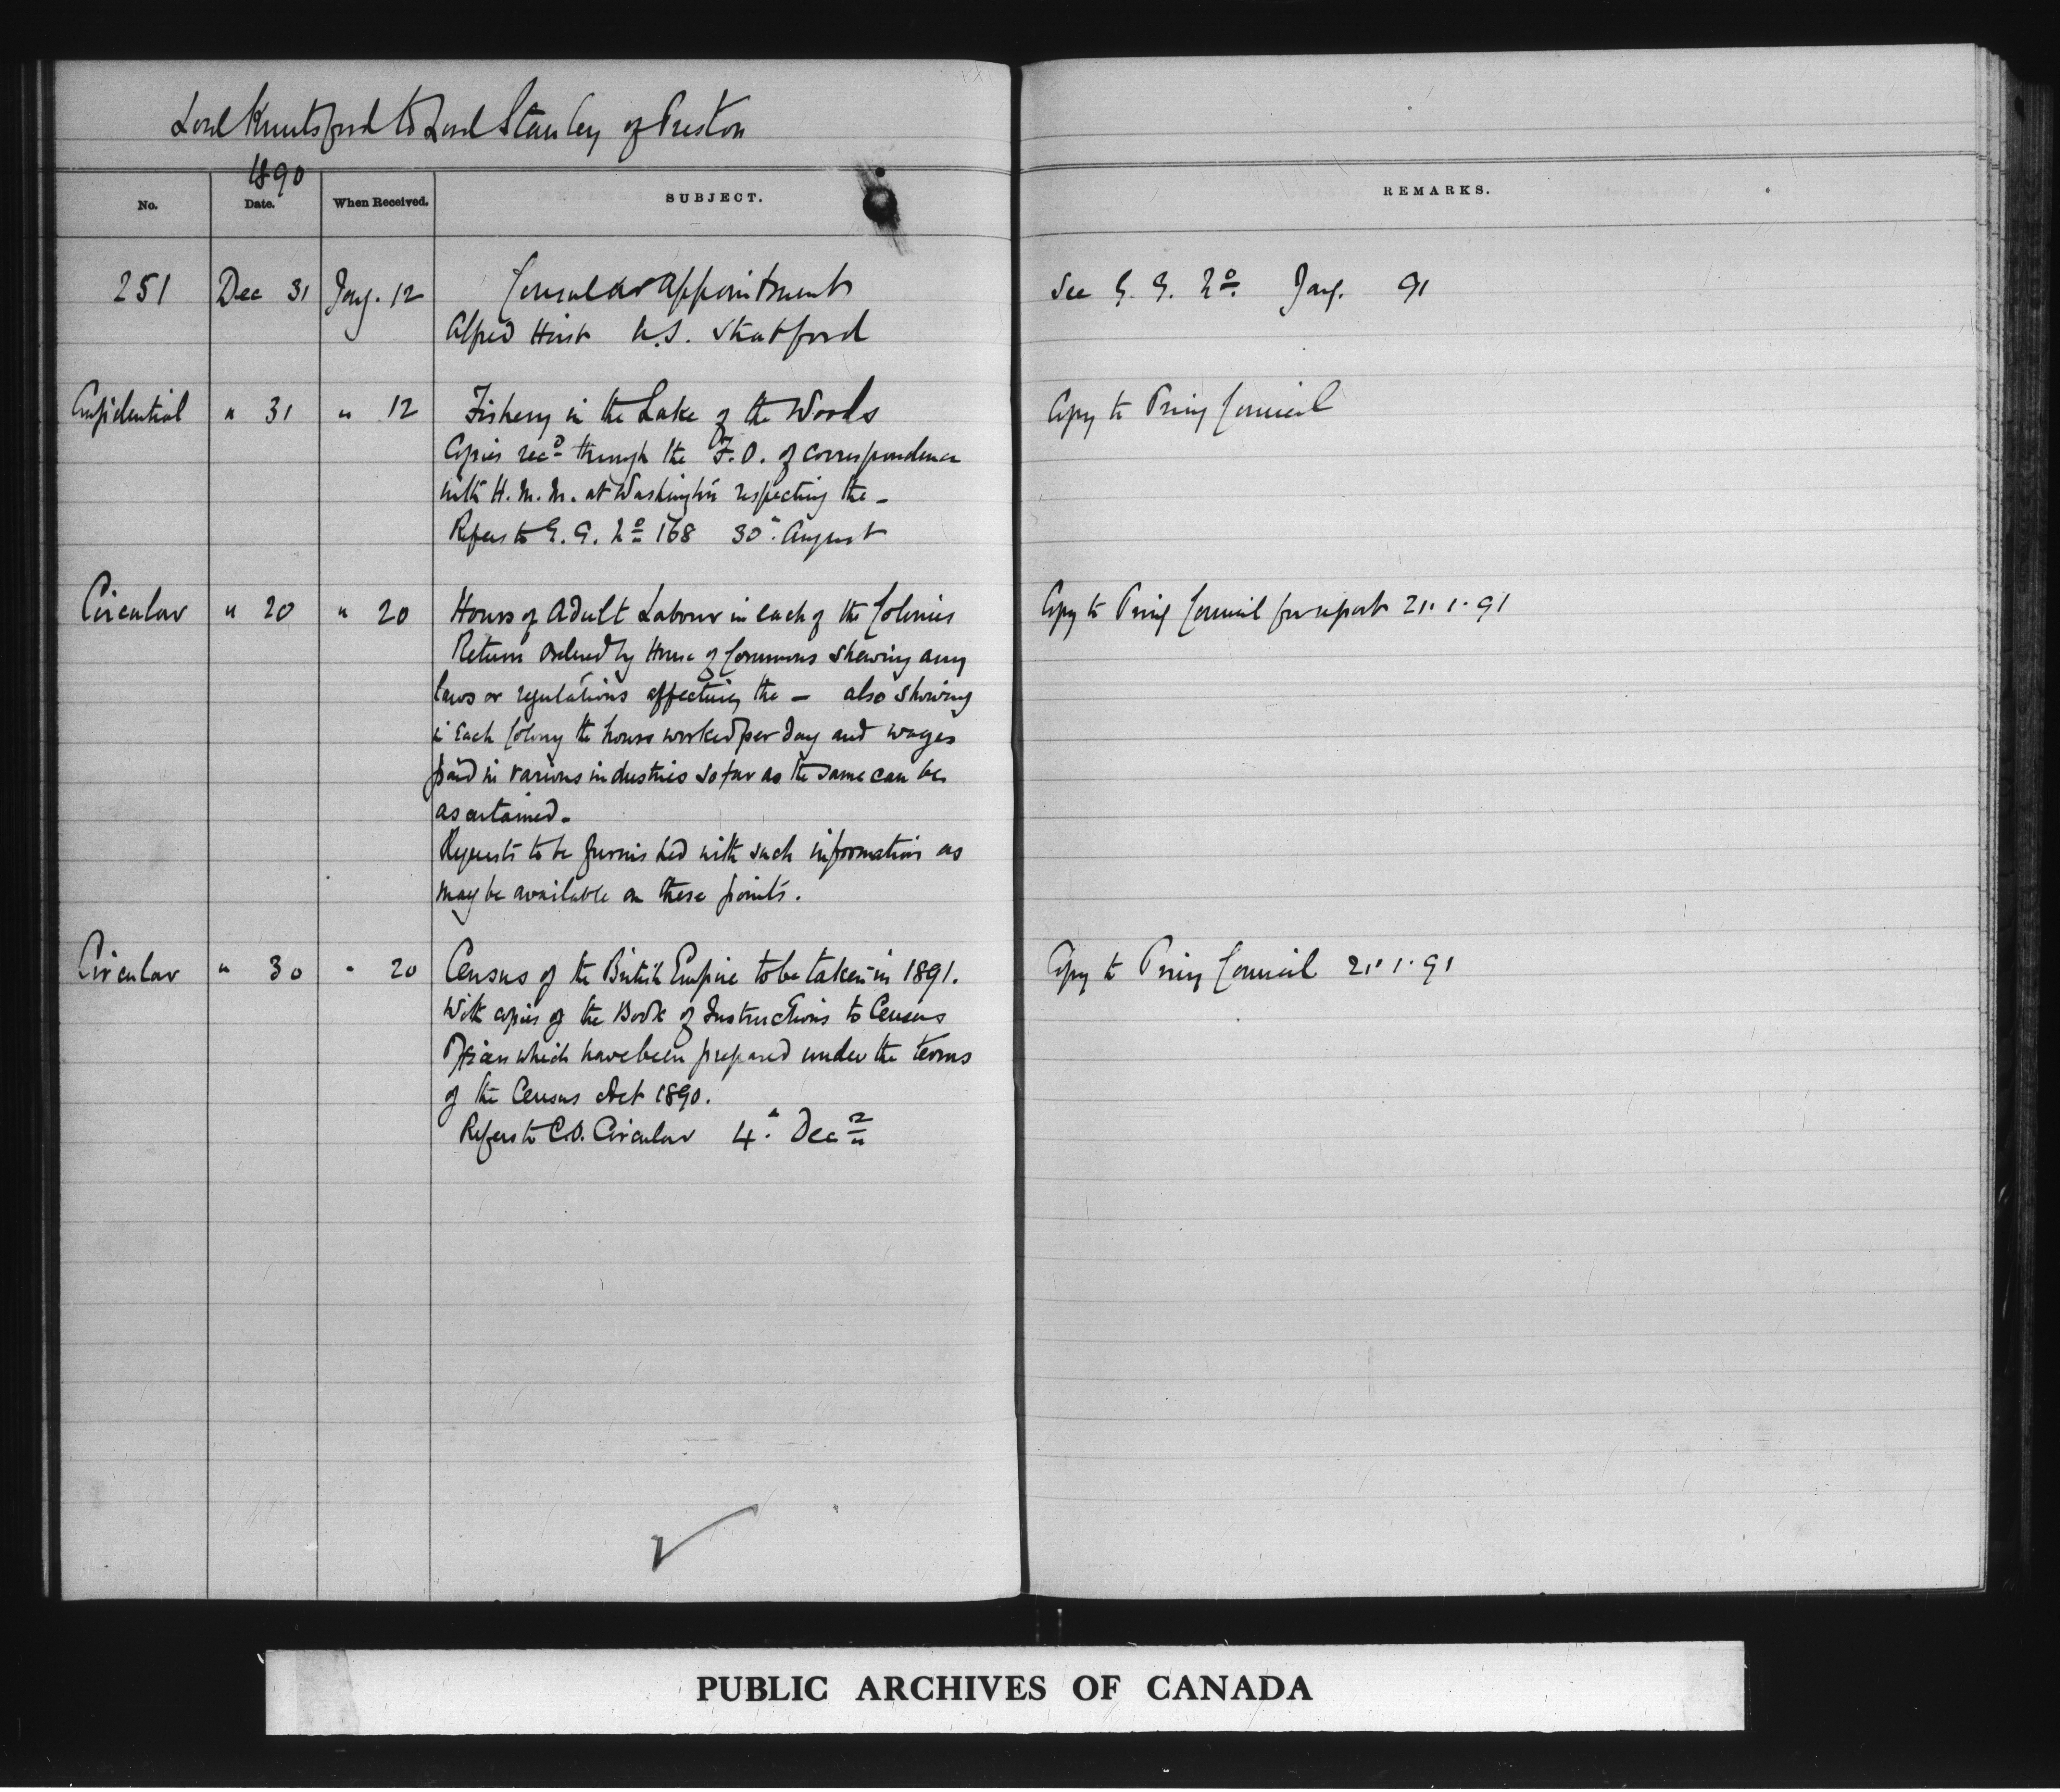 Lord Knutsford to Lord Stanley of Preston
1890
No. Date. When Received. SUBJECT. REMARKS.
251 Dec 31 Jany. 12 Consular appointment See G. G. No. Jany. 91
Alfred Hirst U.S. Stratford
Confidential " 31 " 12 Fishery in the Lake of the Woods Copy to Privy Council
Copies recd through the F.O. of correspondence
with H.M.M. at Washington respecting the —
Refers to G. G. No 168 30th August
Circular " 20 " 20 Hours of Adult Labour in each of the Colonies Copy to Privy Council for report 21.1.91
Return ordered by House of Commons shewing any
laws or regulations affecting the — also showing
in each Colony the hours worked per day and wages
paid in various industries so far as the same can be
ascertained.
Requests to be furnished with such information as
may be available on these points.
Circular " 30 " 20 Census of the British Empire to be taken in 1891. Copy to Privy Council 21.1.91
With copies of the Book of Instructions to Census
Officers which have been prepared under the terms
of the Census Act 1890.
Refers to C.O. Circular 4th Decr
PUBLIC ARCHIVES OF CANADA